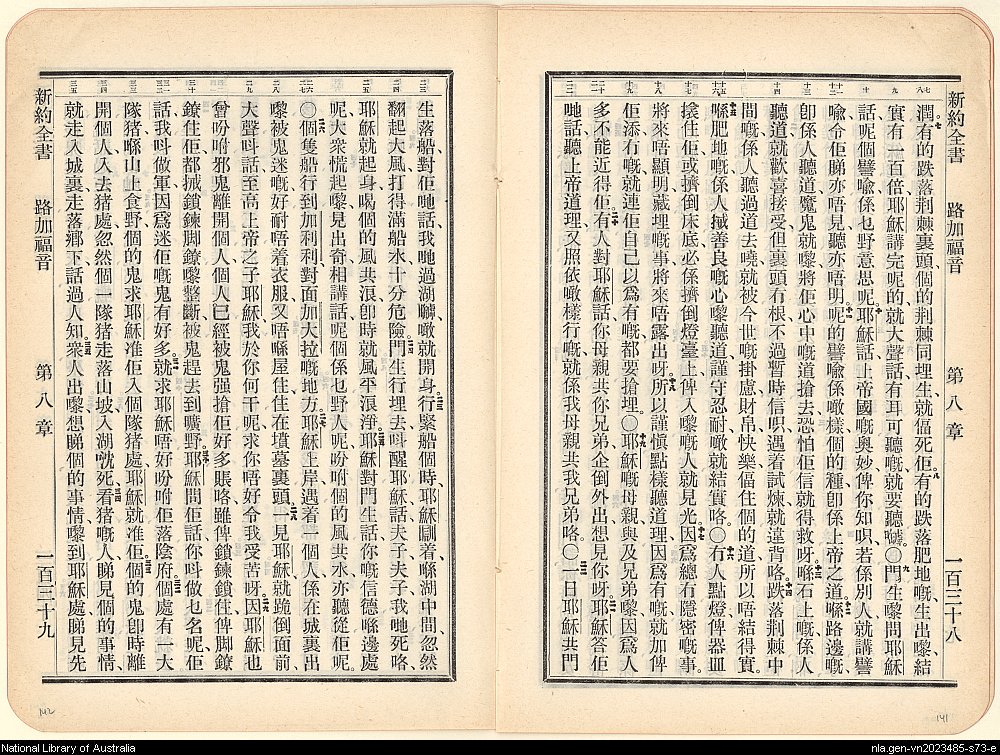 新約全書　路加福音　第八章　一百三十八
潤。有的跌落荆棘裏頭個的荆棘同埋生就偪死佢。有的跌落肥地嘅生出嚟結
實有一百倍耶穌講完呢的就大聲話有耳可聽嘅就要聽〇門生嚟問耶穌
話呢個譬喻係乜野意思呢耶穌話上帝國嘅奧妙俾你知呮若係別人就講譬
喻令佢睇亦唔見聽亦唔明。呢的譬喻係噉樣個的種卽係上帝之道喺路邊嘅
卽係人聽道魔鬼就嚟將佢心中嘅道搶去恐怕佢信就得救呀喺石上嘅係人
聽道就歡喜接受但裏頭有根不過暫時信呮遇着試煉就違背咯跌落荆棘中
間嘅係人聽過道去曉就被今世嘅掛慮財帛快樂偪住個的道所以唔結得實
喺肥地嘅係人椷善良嘅心嚟聽道謹守忍耐噉就結實咯〇有人點燈俾器皿
揜住佢或擠倒床底必係擠倒燈臺上俾入嚟嘅人就見光因爲總冇隱密嘅事
將來唔顯明藏埋嘅事將來唔露出呀所以謹愼點樣聽道理因爲有嘅就加俾
佢添冇嘅就連佢自己以爲有嘅都要搶埋。〇耶穌嘅母親與及兄弟嚟因爲人
多不能近得佢有人對耶穌話你母親共你兄弟企倒外出想見你呀耶穌答佢
哋話聽上帝道理又照依噉樣行嘅就係我母親共我兄弟咯。〇一日耶穌共門
生落船對佢哋話我哋過湖𡅏噉就開身。行緊船個時耶穌瞓着喺湖中間忽然
翻起大風打得滿船水十分危險門生行埋去呌醒耶穌話夫子夫子我哋死咯
耶穌就起身喝個的風共浪卽時就風平浪淨耶穌對門生話你嘅信德喺邊處
呢大衆慌起嚟見出奇相講話呢個係乜野人呢吩咐個的風共水亦聽從佢呢。
〇個隻船行到加利利對面加大拉嘅地方。耶穌上岸遇着一個人係在城裏出
嚟被鬼迷嘅好耐唔着衣服又唔喺屋住住在墳墓裏頭一見耶穌就跪倒面前
大聲呌話至高上帝之子耶穌我於你何干呢求你唔好令我受苦呀因耶穌也
曾吩咐邪鬼離開個人個人已經被鬼强搶佢好多賬咯雖俾鎖鍊鎖住俾脚鐐
鐐住佢都搣鎖鍊脚鐐嚟整斷被鬼趕去到曠野耶穌問佢話你呌做乜名呢佢
話我呌做軍因爲迷佢嘅鬼有好多就求耶穌唔好吩咐佢落陰府個處有一大
隊猪喺山上食野個的鬼求耶穌准佢入個隊猪處耶穌就准佢。個的鬼卽時離
開個人入去猪處忽然個一隊猪走落山坡入湖㕭死看猪嘅人睇見個的事情
就走入城裏走落鄉下話過人知。衆人出嚟想睇個的事情嚟到耶穌處睇見先
新約全書　路加福音　第八章　一百三十九
142
141
National Library of Australia
nla.gen-vn2023485-s73-e